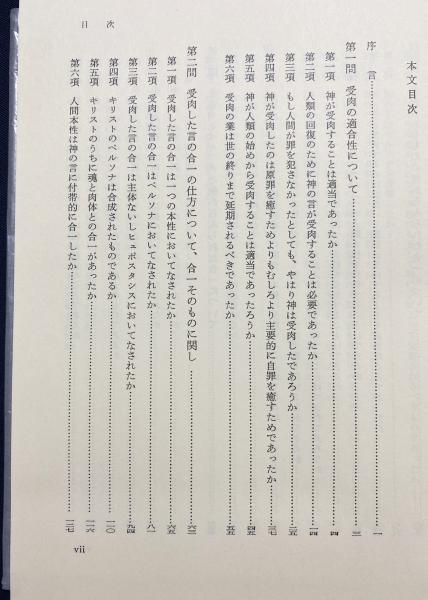 本文目次
序言……一
第一問 受肉の適合性について……三
第一項 神が受肉することは適当であったか……四
第二項 人類の回復のために神の言が受肉することは必要であったか……一四
第三項 もし人間が罪を犯さなかったとしても、やはり神は受肉したであろうか……二五
第四項 神が受肉したのは原罪を癒すためよりもむしろより主要的に自罪を癒すためであったか……三七
第五項 神が人類の始めから受肉することは適当であったろうか……四五
第六項 受肉の業は世の終りまで延期されるべきであったか……五五
第二問 受肉した言の合一の仕方について、合一そのものに関し……六三
第一項 受肉した言の合一は一つの本性においてなされたか……六五
第二項 受肉した言の合一はペルソナにおいてなされたか……八一
第三項 受肉した言の合一は主体ないしヒュポスタシスにおいてなされたか……九四
第四項 キリストのペルソナは合成されたものであるか……一一〇
第五項 キリストのうちに魂と肉体との合一があったか……一一六
第六項 人間本性は神の言に付帯的に合一したか……一二七
目次
vii